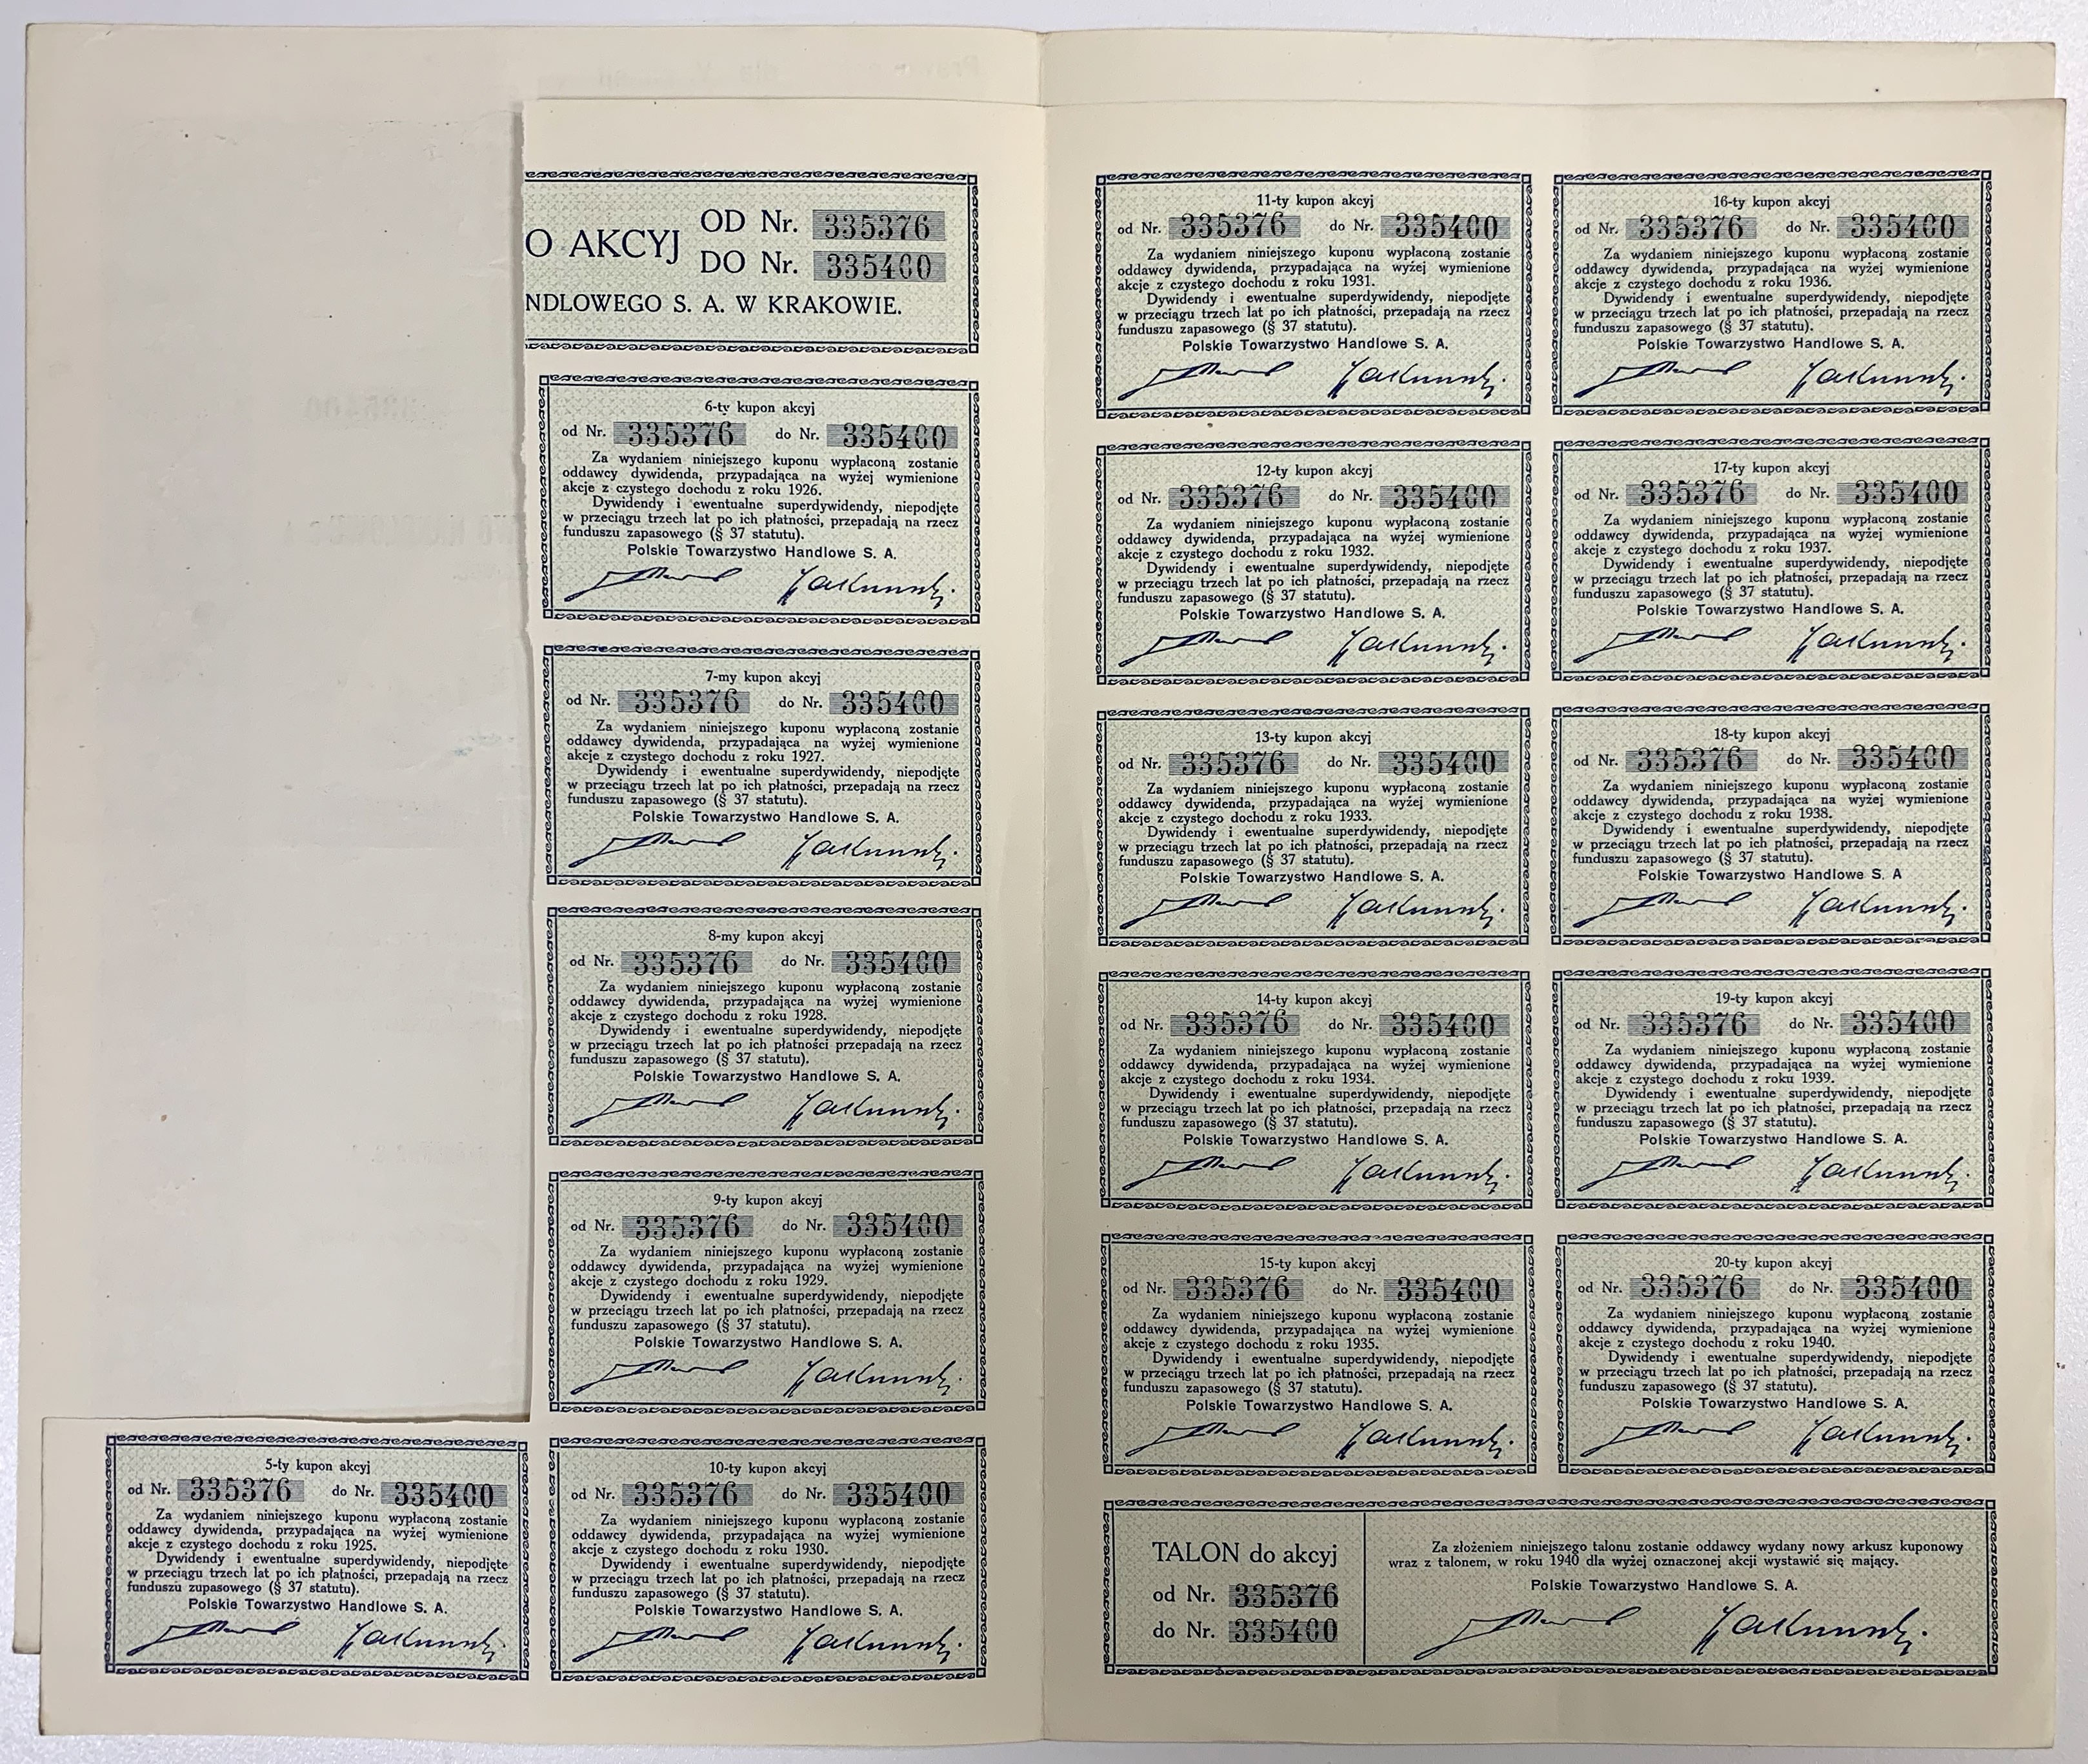 O AKCYJ
OD Nr. 335376
DO Nr. 335400
NDLOWEGO S. A. W KRAKOWIE.
6-ty kupon akcyj
od Nr. 335376 do Nr. 335400
Za wydaniem niniejszego kuponu wypłaconą zostanie
oddawcy dywidenda, przypadająca na wyżej wymienione
akcje z czystego dochodu z roku 1926.
Dywidendy i ewentualne superdywidendy, niepodjęte
w przeciągu trzech lat po ich płatności, przepadają na rzecz
funduszu zapasowego (§ 37 statutu).
Polskie Towarzystwo Handlowe S. A.
7-my kupon akcyj
od Nr. 335376 do Nr. 335400
Za wydaniem niniejszego kuponu wypłaconą zostanie
oddawcy dywidenda, przypadająca na wyżej wymienione
akcje z czystego dochodu z roku 1927.
Dywidendy i ewentualne superdywidendy, niepodjęte
w przeciągu trzech lat po ich płatności, przepadają na rzecz
funduszu zapasowego (§ 37 statutu).
Polskie Towarzystwo Handlowe S. A.
8-my kupon akcyj
od Nr. 335376 do Nr. 335400
Za wydaniem niniejszego kuponu wypłaconą zostanie
oddawcy dywidenda, przypadająca na wyżej wymienione
akcje z czystego dochodu z roku 1928.
Dywidendy i ewentualne superdywidendy, niepodjęte
w przeciągu trzech lat po ich płatności przepadają na rzecz
funduszu zapasowego (§ 37 statutu).
Polskie Towarzystwo Handlowe S. A.
9-ty kupon akcyj
od Nr. 335376 do Nr. 335400
Za wydaniem niniejszego kuponu wypłaconą zostanie
oddawcy dywidenda, przypadająca na wyżej wymienione
akcje z czystego dochodu z roku 1929.
Dywidendy i ewentualne superdywidendy, niepodjęte
w przeciągu trzech lat po ich płatności, przepadają na rzecz
funduszu zapasowego (§ 37 statutu).
Polskie Towarzystwo Handlowe S. A.
5-ty kupon akcyj
od Nr. 335376 do Nr. 335400
Za wydaniem niniejszego kuponu wypłaconą zostanie
oddawcy dywidenda, przypadająca na wyżej wymienione
akcje z czystego dochodu z roku 1925.
Dywidendy i ewentualne superdywidendy, niepodjęte
w przeciągu trzech lat po ich płatności, przepadają na rzecz
funduszu zupasowego (§ 37 statutu).
Polskie Towarzystwo Handlowe S. A.
10-ty kupon akcyj
od Nr. 335376 do Nr. 335400
Za wydaniem niniejszego kuponu wypłaconą zostanie
oddawcy dywidenda, przypadająca na wyżej wymienione
akcje z czystego dochodu z roku 1930.
Dywidendy i ewentualne superdywidendy, niepodjęte
w przeciągu trzech lat po ich płatności, przepadają na rzecz
funduszu zapasowego (§ 37 statutu).
Polskie Towarzystwo Handlowe S. A.
11-ty kupon akcyj
od Nr. 335376 do Nr. 335400
Za wydaniem niniejszego kuponu wypłaconą zostanie
oddawcy dywidenda, przypadająca na wyżej wymienione
akcje z czystego dochodu z roku 1931.
Dywidendy i ewentualne superdywidendy, niepodjęte
w przeciągu trzech lat po ich płatności, przepadają na rzecz
funduszu zapasowego (§ 37 statutu).
Polskie Towarzystwo Handlowe S. A.
12-ty kupon akcyj
od Nr. 335376 do Nr. 335400
Za wydaniem niniejszego kuponu wypłaconą zostanie
oddawcy dywidenda, przypadająca na wyżej wymienione
akcje z czystego dochodu z roku 1932.
Dywidendy i ewentualne superdywidendy, niepodjęte
w przeciągu trzech lat po ich płatności, przepadają na rzecz
funduszu zapasowego (§ 37 statutu).
Polskie Towarzystwo Handlowe S. A.
13-ty kupon akcyj
od Nr. 335376 do Nr. 335400
Za wydaniem niniejszego kuponu wypłaconą zostanie
oddawcy dywidenda, przypadająca na wyżej wymienione
akcje z czystego dochodu z roku 1933.
Dywidendy i ewentualne superdywidendy, niepodjęte
w przeciągu trzech lat po ich płatności, przepadają na rzecz
funduszu zapasowego (§ 37 statutu).
Polskie Towarzystwo Handlowe S. A.
14-ty kupon akcyj
od Nr. 335376 do Nr. 335400
Za wydaniem niniejszego kuponu wypłaconą zostanie
oddawcy dywidenda, przypadająca na wyżej wymienione
akcje z czystego dochodu z roku 1934.
Dywidendy i ewentualne superdywidendy, niepodjęte
w przeciągu trzech lat po ich płatności, przepadają na rzecz
funduszu zapasowego (§ 37 statutu).
Polskie Towarzystwo Handlowe S. A.
15-ty kupon akcyj
od Nr. 335376 do Nr. 335400
Za wydaniem niniejszego kuponu wypłaconą zostanie
oddawcy dywidenda, przypadająca na wyżej wymienione
akcje z czystego dochodu z roku 1935.
Dywidendy i ewentualne superdywidendy, niepodjęte
w przeciągu trzech lat po ich płatności, przepadają na rzecz
funduszu zapasowego (§ 37 statutu).
Polskie Towarzystwo Handlowe S. A.
16-ty kupon akcyj
od Nr. 335376 do Nr. 335400
Za wydaniem niniejszego kuponu wypłaconą zostanie
oddawcy dywidenda, przypadająca na wyżej wymienione
akcje z czystego dochodu z roku 1936.
Dywidendy i ewentualne superdywidendy, niepodjęte
w przeciągu trzech lat po ich płatności, przepadają na rzecz
funduszu zapasowego (§ 37 statutu).
Polskie Towarzystwo Handlowe S. A.
17-ty kupon akcyj
od Nr. 335376 do Nr. 335400
Za wydaniem niniejszego kuponu wypłaconą zostanie
oddawcy dywidenda, przypadająca na wyżej wymienione
akcje z czystego dochodu z roku 1937.
Dywidendy i ewentualne superdywidendy, niepodjęte
w przeciągu trzech lat po ich płatności, przepadają na rzecz
funduszu zapasowego (§ 37 statutu).
Polskie Towarzystwo Handlowe S. A.
18-ty kupon akcyj
od Nr. 335376 do Nr. 335400
Za wydaniem niniejszego kuponu wypłaconą zostanie
oddawcy dywidenda, przypadająca na wyżej wymienione
akcje z czystego dochodu z roku 1938.
Dywidendy i ewentualne superdywidendy, niepodjęte
w przeciągu trzech lat po ich płatności, przepadają na rzecz
funduszu zapasowego (§ 37 statutu).
Polskie Towarzystwo Handlowe S. A
19-ty kupon akcyj
od Nr. 335376 do Nr. 335400
Za wydaniem niniejszego kuponu wypłaconą zostanie
oddawcy dywidenda, przypadająca na wyżej wymienione
akcje z czystego dochodu z roku 1939.
Dywidendy i ewentualne superdywidendy, niepodjęte
w przeciągu trzech lat po ich płatności, przepadają na rzecz
funduszu zapasowego (§ 37 statutu).
Polskie Towarzystwo Handlowe S. A.
20-ty kupon akcyj
od Nr. 335376 do Nr. 335400
Za wydaniem niniejszego kuponu wypłaconą zostanie
oddawcy dywidenda, przypadająca na wyżej wymienione
akcje z czystego dochodu z roku 1940.
Dywidendy i ewentualne superdywidendy, niepodjęte
w przeciągu trzech lat po ich płatności, przepadają na rzecz
funduszu zapasowego (§ 37 statutu).
Polskie Towarzystwo Handlowe S. A.
TALON do akcyj
od Nr. 335376
do Nr. 335400
Za złożeniem niniejszego talonu zostanie oddawcy wydany nowy arkusz kuponowy
wraz z talonem, w roku 1940 dla wyżej oznaczonej akcji wystawić się mający.
Polskie Towarzystwo Handlowe S. A.